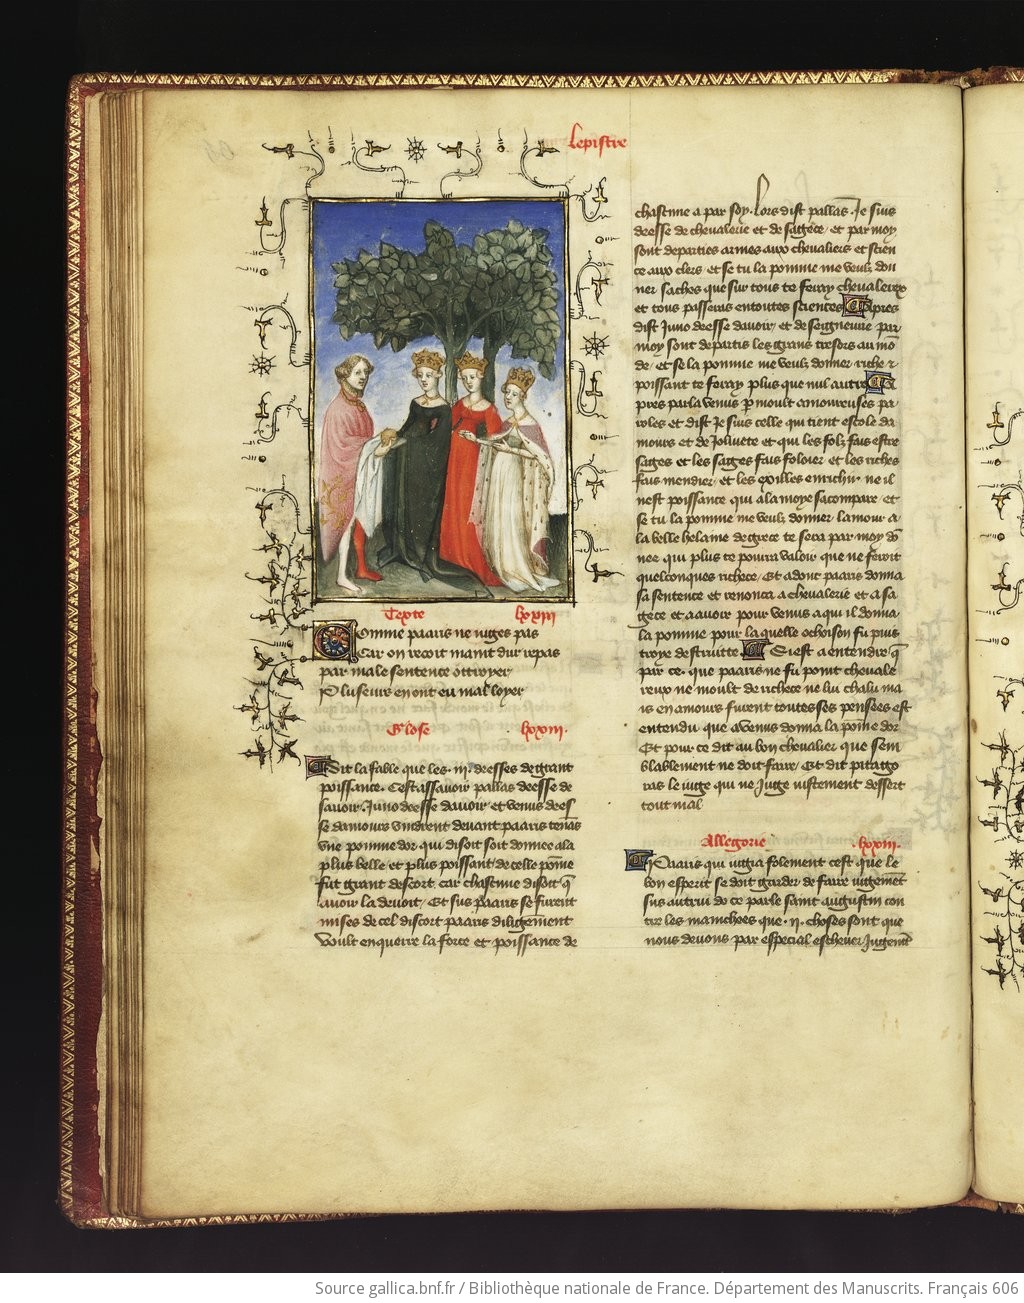 Lepistre
Texte lxxiii
Comme paaris ne iuges pas
Car on recoit maint dur repas
par male sentence ottroyer
Pluseurs en ont eu mal loyer
Glose lxxiii.
Dit la fable que les .iii. deesses de grant
poissance. Cest assauoir pallas deesse de
sauoir. Juno deesse dauoir et venus dees
se damours vindrent deuant paaris tenās
vne pomme dor qui disoit soit donnee a la
plus belle et plus poissant de celle pōme
fut grant descort car chascune disoit q̄
auoir la deuoit / Et sus paaris se furent
mises de cel discort paaris diligēment
voult enquerre la force et poissance de
chascune a par soy. Lors dist pallas. Je suis
deesse de cheualerie et de sagece / et par moy
sont departies armes aux cheualiers et scien
ce aux clers et se tu la pomme me veulz don
ner saches que sur tous te feray cheualereux
et tous passeras en toutes sciences Apres
dist Juno deesse dauoir et de seigneurie par
moy sont departis les grans tresors au mō
de / et se la pomme me veulz donner riche et
poissant te feray plus que nul autre A
pres parla venus p moult amoureuses pa
roles et dist Je suis celle qui tient escole da
mours et de Joliuete et qui les folz fais estre
sages et les sages fais foloier et les riches
fais mendier / et les exilles enrichir ne il
nest poissance qui a la moye sacompare / et
se tu la pomme me veulz donner lamour a
la belle helaine de grece te sera par moy dō
nee qui plus te pourra valoir que ne feroit
quelconques richece / Et adont paaris donna
sa sentence et renonca a cheualerie et a sa
gece et a auoir pour venus a qui il donna
la pomme pour la quelle ochoison fu puis
troye destruitte Si est a entendre q̄
par ce que paaris ne fu point cheuale
reux ne moult de richece ne lui chalu ma
is en amours furent toutes ses pensees est
entendu que a venus donna la pome dor
Et pour ce dit au bon cheualier que sem
blablement ne doit faire / Et dit pitago
ras le iuge qui ne Juge iustement dessert
tout mal
Allegorie .lxxiii.
Paaris qui iuga folement cest que le
bon esperit se doit garder de faire iugement
sus autrui de ce parle saint augustin con
tre les manichees que .ii. choses sont que
nous deuons par especial escheuer Jugemēt
Source gallica.bnf.fr / Bibliothèque nationale de France. Département des Manuscrits. Français 606